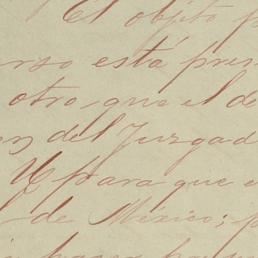 El objeto p
rso está pres
otro, que el de
del Juzgad
para que e
de México; p